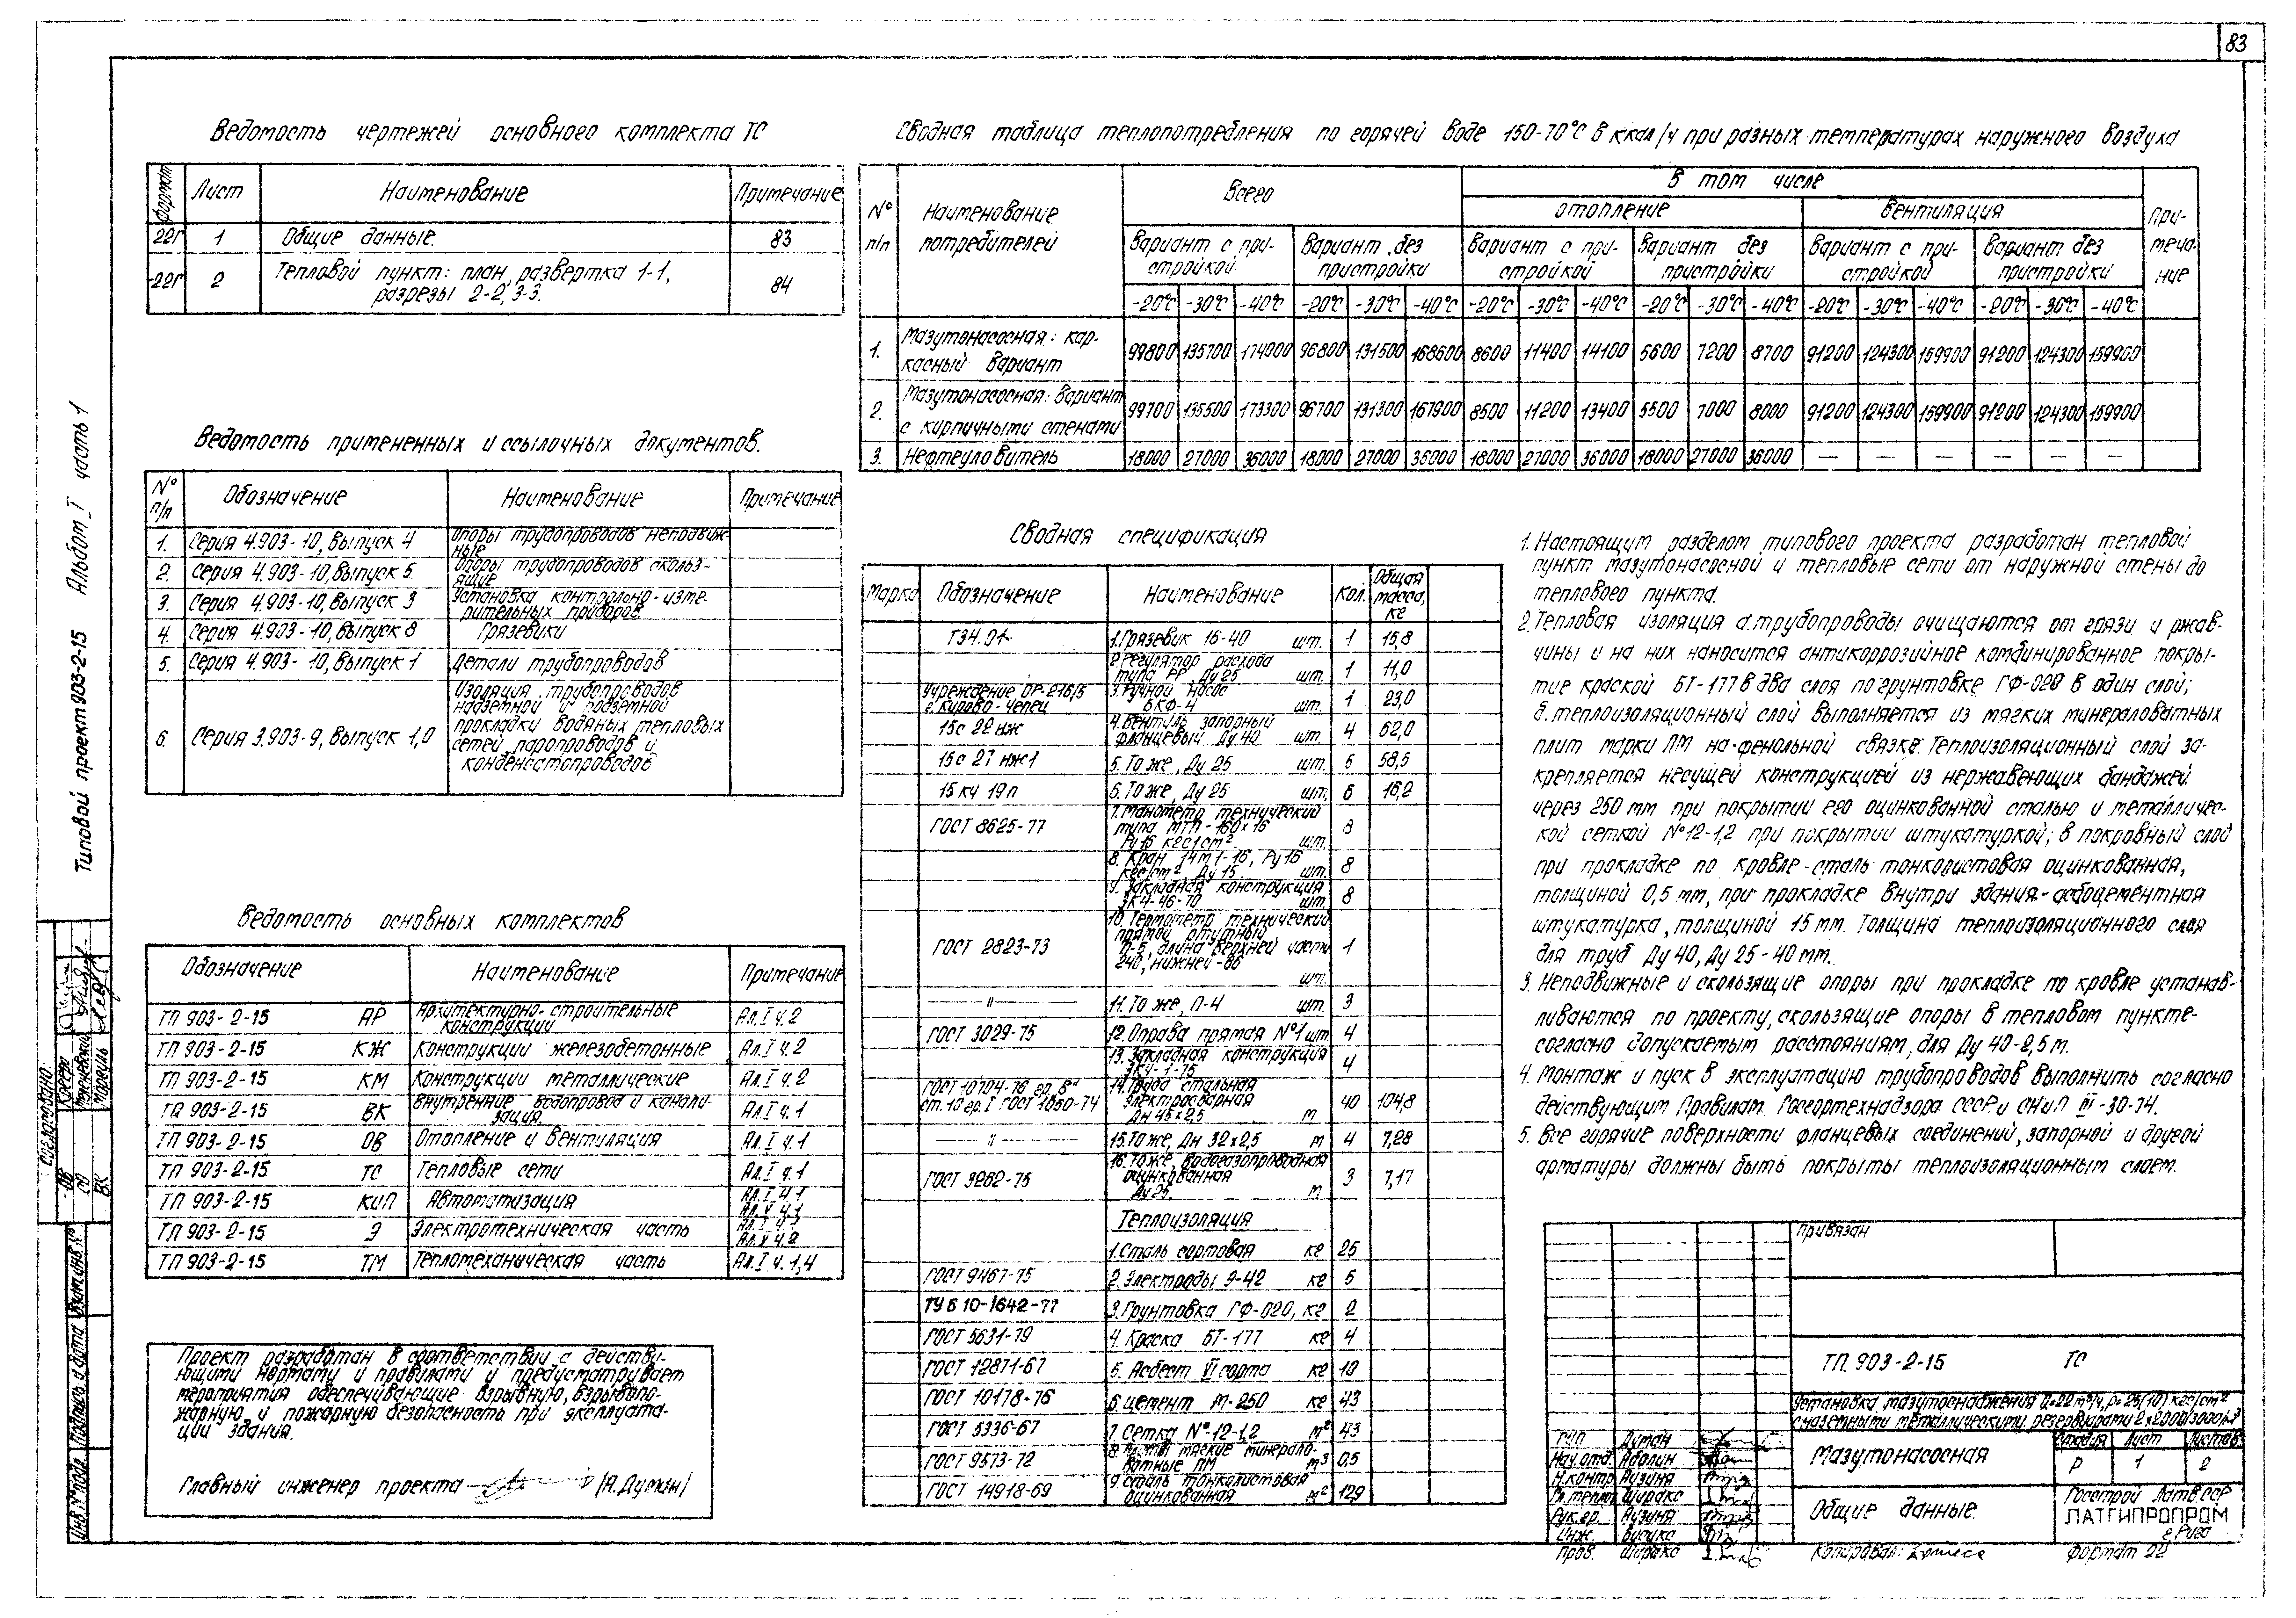 83
Ведомость чертежей основного комплекта ТС
Формат Лист Наименование Примечание
22Г 1 Общие данные. 83
22Г 2 Тепловой пункт: план, развертка 1-1,
разрезы 2-2, 3-3. 84
Ведомость примененных и ссылочных документов.
№ п/п Обозначение Наименование Примечание
1. Серия 4.903-10, выпуск 4 Опоры трубопроводов неподвиж-
ные
2. Серия 4.903-10, выпуск 5 Опоры трубопроводов скольз-
ящие
3. Серия 4.903-10, выпуск 3 Установка контрольно-изме-
рительных приборов.
4. Серия 4.903-10, выпуск 8 Грязевики
5. Серия 4.903-10, выпуск 1 Детали трубопроводов
6. Серия 3.903-9, выпуск 1,0 Изоляция трубопроводов
надземной и подземной
прокладки водяных тепловых
сетей, паропроводов и
конденсатопроводов
Ведомость основных комплектов
Обозначение Наименование Примечание
ТП 903-2-15 АР Архитектурно-строительные
конструкции Ал.I ч.2
ТП 903-2-15 КЖ Конструкции железобетонные Ал.I ч.2
ТП 903-2-15 КМ Конструкции металлические Ал.I ч.2
ТП 903-2-15 ВК Внутренние водопровод и канали-
зация. Ал.I ч.1
ТП 903-2-15 ОВ Отопление и вентиляция Ал.I ч.1
ТП 903-2-15 ТС Тепловые сети Ал.I ч.1
ТП 903-2-15 КиП Автоматизация Ал.I ч.1
Ал.V ч.1
ТП 903-2-15 Э Электротехническая часть
Ал.V ч.2
ТП 903-2-15 ТМ Тепломеханическая часть Ал.I ч.1,4
Проект разработан в соответствии с действу-
ющими нормами и правилами и предусматривает
мероприятия обеспечивающие взрывную, взрывопо-
жарную и пожарную безопасность при эксплуата-
ции здания.
Главный инженер проекта (А.Думан)
Сводная таблица теплопотребления по горячей воде 150-70°С в ккал/ч при разных температурах наружного воздуха
№ п/п Наименование потребителей Всего В том числе При-
меча-
ние
отопление вентиляция
Вариант с при-
стройкой Вариант без
пристройки Вариант с при-
стройкой Вариант без
пристройки Вариант с при-
стройкой Вариант без
пристройки
-20°С -30°С -40°С -20°С -30°С -40°С -20°С -30°С -40°С -20°С -30°С -40°С -20°С -30°С -40°С -20°С -30°С -40°С
1. Мазутонасосная: кар-
касный вариант 99800 135700 174000 96800 131500 168600 8600 11400 14100 5600 7200 8700 91200 124300 159900 91200 124300 159900
2. Мазутонасосная: вариант
с кирпичными стенами 99700 135500 173300 96700 131300 167900 8500 11200 13400 5500 7000 8000 91200 124300 159900 91200 124300 159900
3. Нефтеуловитель 18000 27000 36000 18000 27000 36000 18000 27000 36000 18000 27000 36000 — — — — — —
Сводная спецификация
Марка Обозначение Наименование Кол. Общая
масса,
кг
Т34.01 1. Грязевик 16-40 шт. 1 15,8
2. Регулятор расхода
типа РР Ду 25 шт. 1 11,0
Учреждение ОР-216/5
г. Кирово-Чепец 3. Ручной насос
БКФ-4 шт. 1 23,0
15с 22 нж 4. Вентиль запорный
фланцевый Ду 40 шт. 4 62,0
15с 27 нж1 5. То же, Ду 25 шт. 5 58,5
15 кч 19п 6. То же, Ду 25 шт. 6 16,2
ГОСТ 8625-77 7. Манометр технический
типа МТП-160х16
Ру16 кгс/см². шт. 8
8. Кран 14м1-16, Ру16
кгс/см² Ду 15 шт. 8
9. Закладная конструкция
ЗК4-46-70 шт. 8
ГОСТ 2823-73 10. Термометр технический
прямой ртутный
П-5, длина верхней части
240, нижней-66
шт. 1
—"— 11. То же, П-4 шт. 3
ГОСТ 3029-75 12. Оправа прямая №1 шт. 4
13. Закладная конструкция
ЗК4-1-75 4
ГОСТ 10704-76 гр. В
ст. 10 гр. I ГОСТ 1050-74 14. Труба стальная
электросварная
Дн 45х2,5 м 40 104,8
—"— 15. То же, Дн 32х2,5 м 4 7,28
ГОСТ 3262-75 16. То же, водогазопроводная
оцинкованная
Ду 25. м 3 7,17
Теплоизоляция
1. Сталь сортовая кг 25
ГОСТ 9467-75 2. Электроды Э-42 кг 5
ТУ 6 10-1642-77 3. Грунтовка ГФ-020, кг 2
ГОСТ 5631-79 4. Краска БТ-177 кг 4
ГОСТ 12871-67 5. Асбест VI сорта кг 10
ГОСТ 10178-76 6. Цемент М-250 кг 43
ГОСТ 5336-67 7. Сетка №-12-1,2 м² 43
ГОСТ 9573-72 8. Плиты мягкие минерало-
ватные ПМ м³ 0,5
ГОСТ 14918-69 9. Сталь тонколистовая
оцинкованная м² 129
1. Настоящим разделом типового проекта разработан тепловой
пункт мазутонасосной и тепловые сети от наружной стены до
теплового пункта.
2. Тепловая изоляция а. трубопроводы очищаются от грязи и ржав-
чины и на них наносится антикоррозийное комбинированное покры-
тие краской БТ-177 в два слоя по грунтовке ГФ-020 в один слой;
б. теплоизоляционный слой выполняется из мягких минераловатных
плит марки ПМ на фенольной связке. Теплоизоляционный слой за-
крепляется несущей конструкцией из нержавеющих бандажей
через 250 мм при покрытии его оцинкованной сталью и металличес-
кой сеткой №12-1,2 при покрытии штукатуркой; в покровный слой
при прокладке по кровле-сталь тонколистовая оцинкованная,
толщиной 0,5 мм, при прокладке внутри здания-асбоцементная
штукатурка, толщиной 15 мм. Толщина теплоизоляционного слоя
для труб Ду 40, Ду 25-40 мм.
3. Неподвижные и скользящие опоры при прокладке по кровле устанав-
ливаются по проекту, скользящие опоры в тепловом пункте-
согласно допускаемым расстояниям, для Ду 40-2,5 м.
4. Монтаж и пуск в эксплуатацию трубопроводов выполнить согласно
действующим Правилам Госгортехнадзора СССР и СНиП III-30-74.
5. Все горячие поверхности фланцевых соединений, запорной и другой
арматуры должны быть покрыты теплоизоляционным слоем.
Привязан
ТП. 903-2-15 ТС
Установка мазутоснабжения Q=22 м³/ч, р=25(10) кгс/см²
с наземными металлическими резервуарами 2х2000(3000)м³
Мазутонасосная Стадия Лист Листов
Р 1 2
Общие данные. Госстрой Латв.ССР
ЛАТГИПРОПРОМ
г. Рига
ГИП Думан
Нач.отд. Адолин
Н.контр. Аузиня
Гл.теплот. Ширакс
Рук.гр. Аузиня
Инж.
Пров. Ширакс
Копировал: Формат 22
Типовой проект 903-2-15 Альбом I часть 1
Согласовано:
ОВ
ВК
Инв.№ подл. Подпись и дата Взам.инв.№